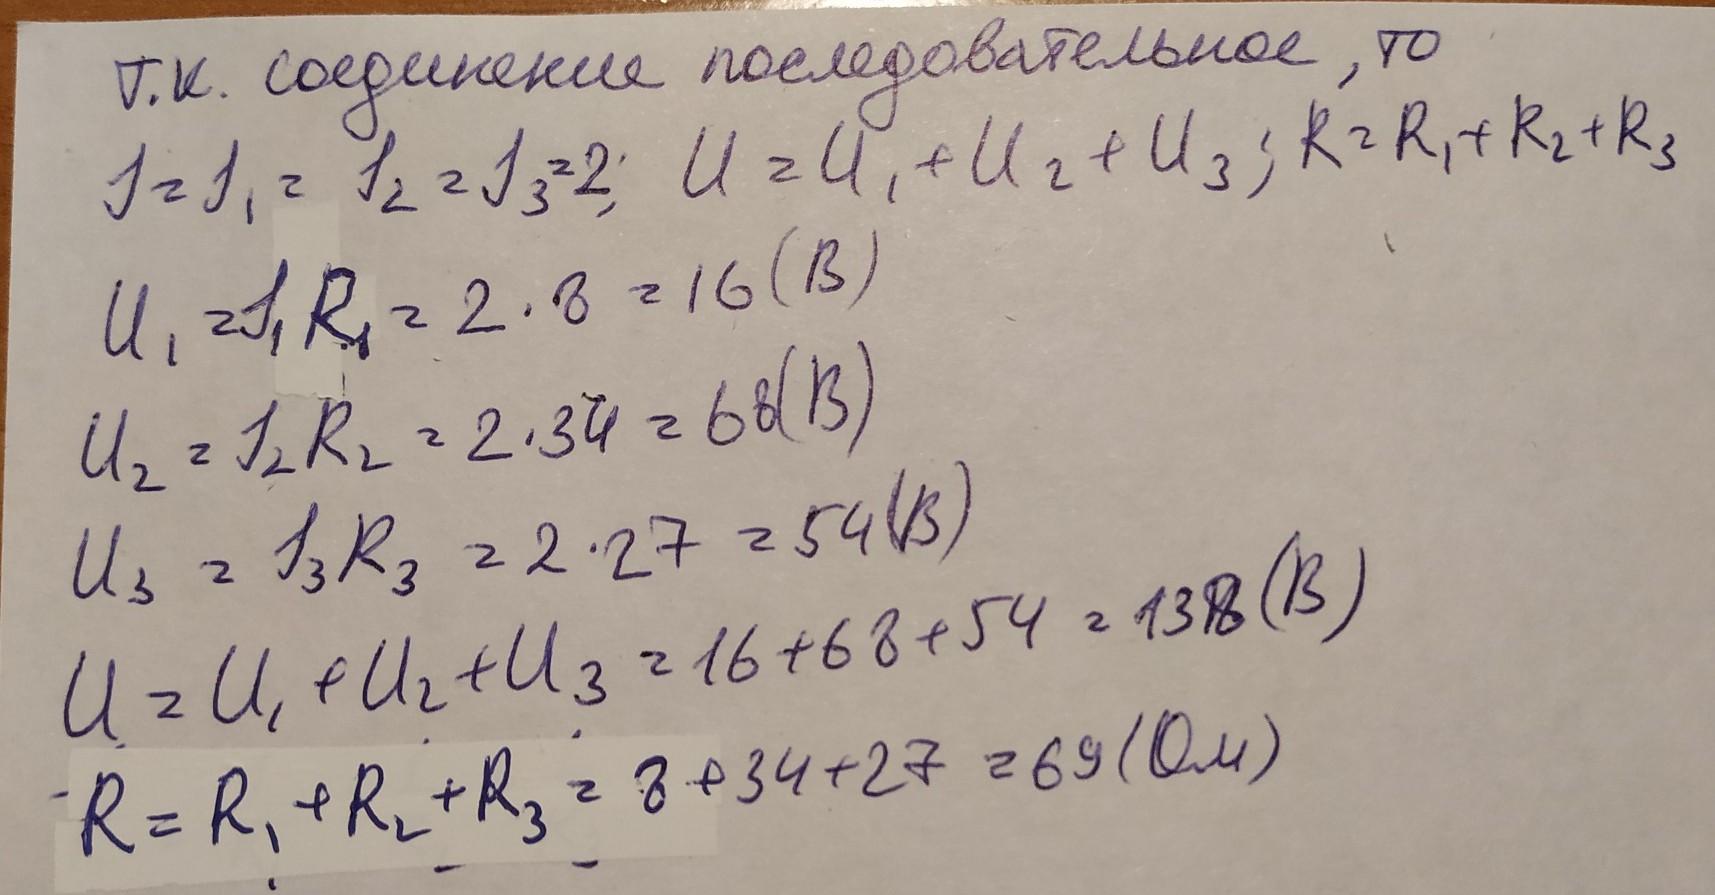 т.к. соединение последовательное, то
I = I₁ = I₂ = I₃ = 2; U = U₁ + U₂ + U₃; R = R₁ + R₂ + R₃
U₁ = I₁R₁ = 2 · 8 = 16 (В)
U₂ = I₂R₂ = 2 · 34 = 68 (В)
U₃ = I₃R₃ = 2 · 27 = 54 (В)
U = U₁ + U₂ + U₃ = 16 + 68 + 54 = 138 (В)
R = R₁ + R₂ + R₃ = 8 + 34 + 27 = 69 (Ом)